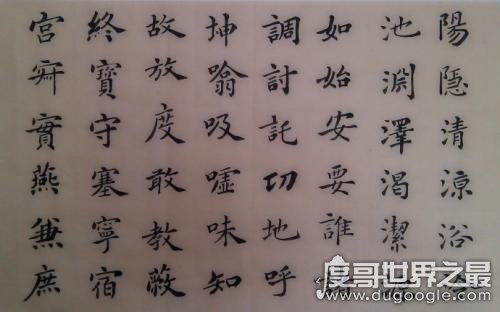 陽隱清涼浴
池淵澤渴潔
如始安要誰
調討託切地呼
坤噏吸嘘味知
故放度敢教蔽
終寶守塞寧宿
宮實燕兼庶
度哥世界之最
www.dugoogle.com